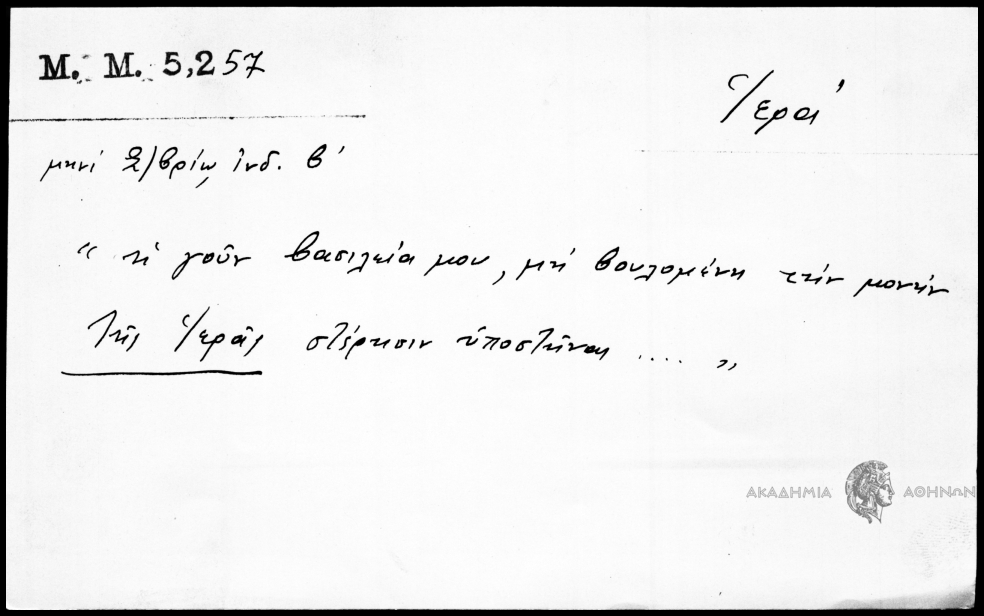 Μ. Μ. 5,257
Ἱερά
μηνὶ /βρίῳ ἰνδ. β'
“ ἡ γοῦν βασιλεία μου, μὴ βουλομένη τὴν μονὴν
τῆς Ἱερᾶς στέρησιν ὑποστῆναι .... „
ΑΚΑΔΗΜΙΑ ΑΘΗΝΩΝ